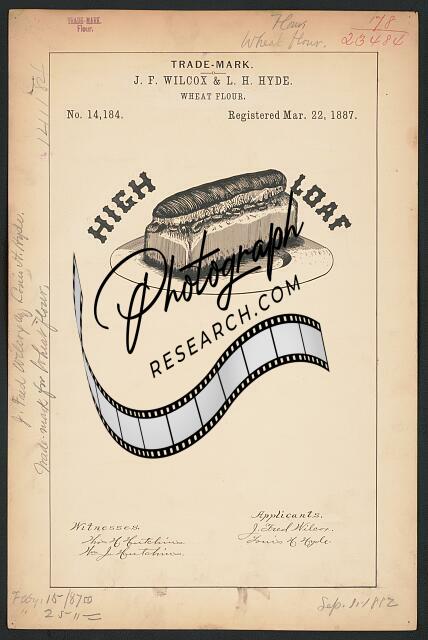 TRADE-MARK.
Flour.
Flour
Wheat flour.
178
23484
TRADE-MARK.
J. F. WILCOX & L. H. HYDE.
WHEAT FLOUR.
No. 14,184.
Registered Mar. 22, 1887.
HIGH LOAF
Photograph
RESEARCH.COM
Trade-mark for Wheat flour.
Witnesses.
Applicants.
J. Fred Wilcox.
Louis H. Hyde
Wm J. Hutchins.